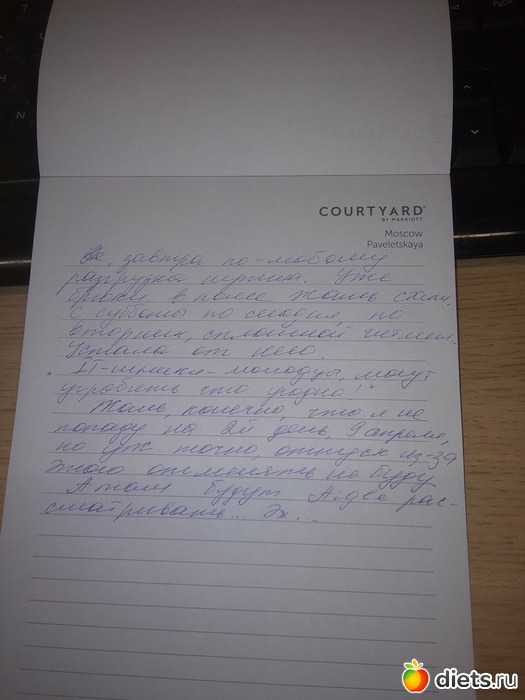 COURTYARD®
BY MARRIOTT
Moscow
Paveletskaya
завтра по-любому
разгрузка нужна. Уже
брюки в поясе жать стали.
С субботы по сегодня, по
вторник, сплошной читмил.
Устала от него.
"IT-шники - молодцы, могут
угробить что угодно!"
Жаль, конечно, что я не
попаду на 2й день, 9 апреля,
но уж точно, отпуск из-за
этого отменять не буду
А там будут рас-
сматривать... Эх....
diets.ru